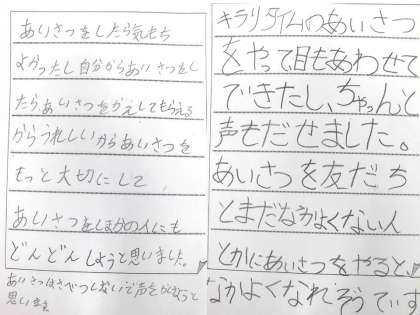 あいさつをしたら気もち
よかったし自分からあいさつをし
たらあいさつをかえしてもらえる
からうれしいからあいさつを
もっと大切にして
あいさつをしほ分の人にも
どんどんしようと思いました。
あいさつはさべつしないで声をかけようと
思います
キラリタイムのあいさつ
をやって目もあわせて
できたし、ちゃんと
声もだせました。
あいさつを友だち
とまだなかよくない人
とかにあいさつをやると、
なかよくなれそうでぃす